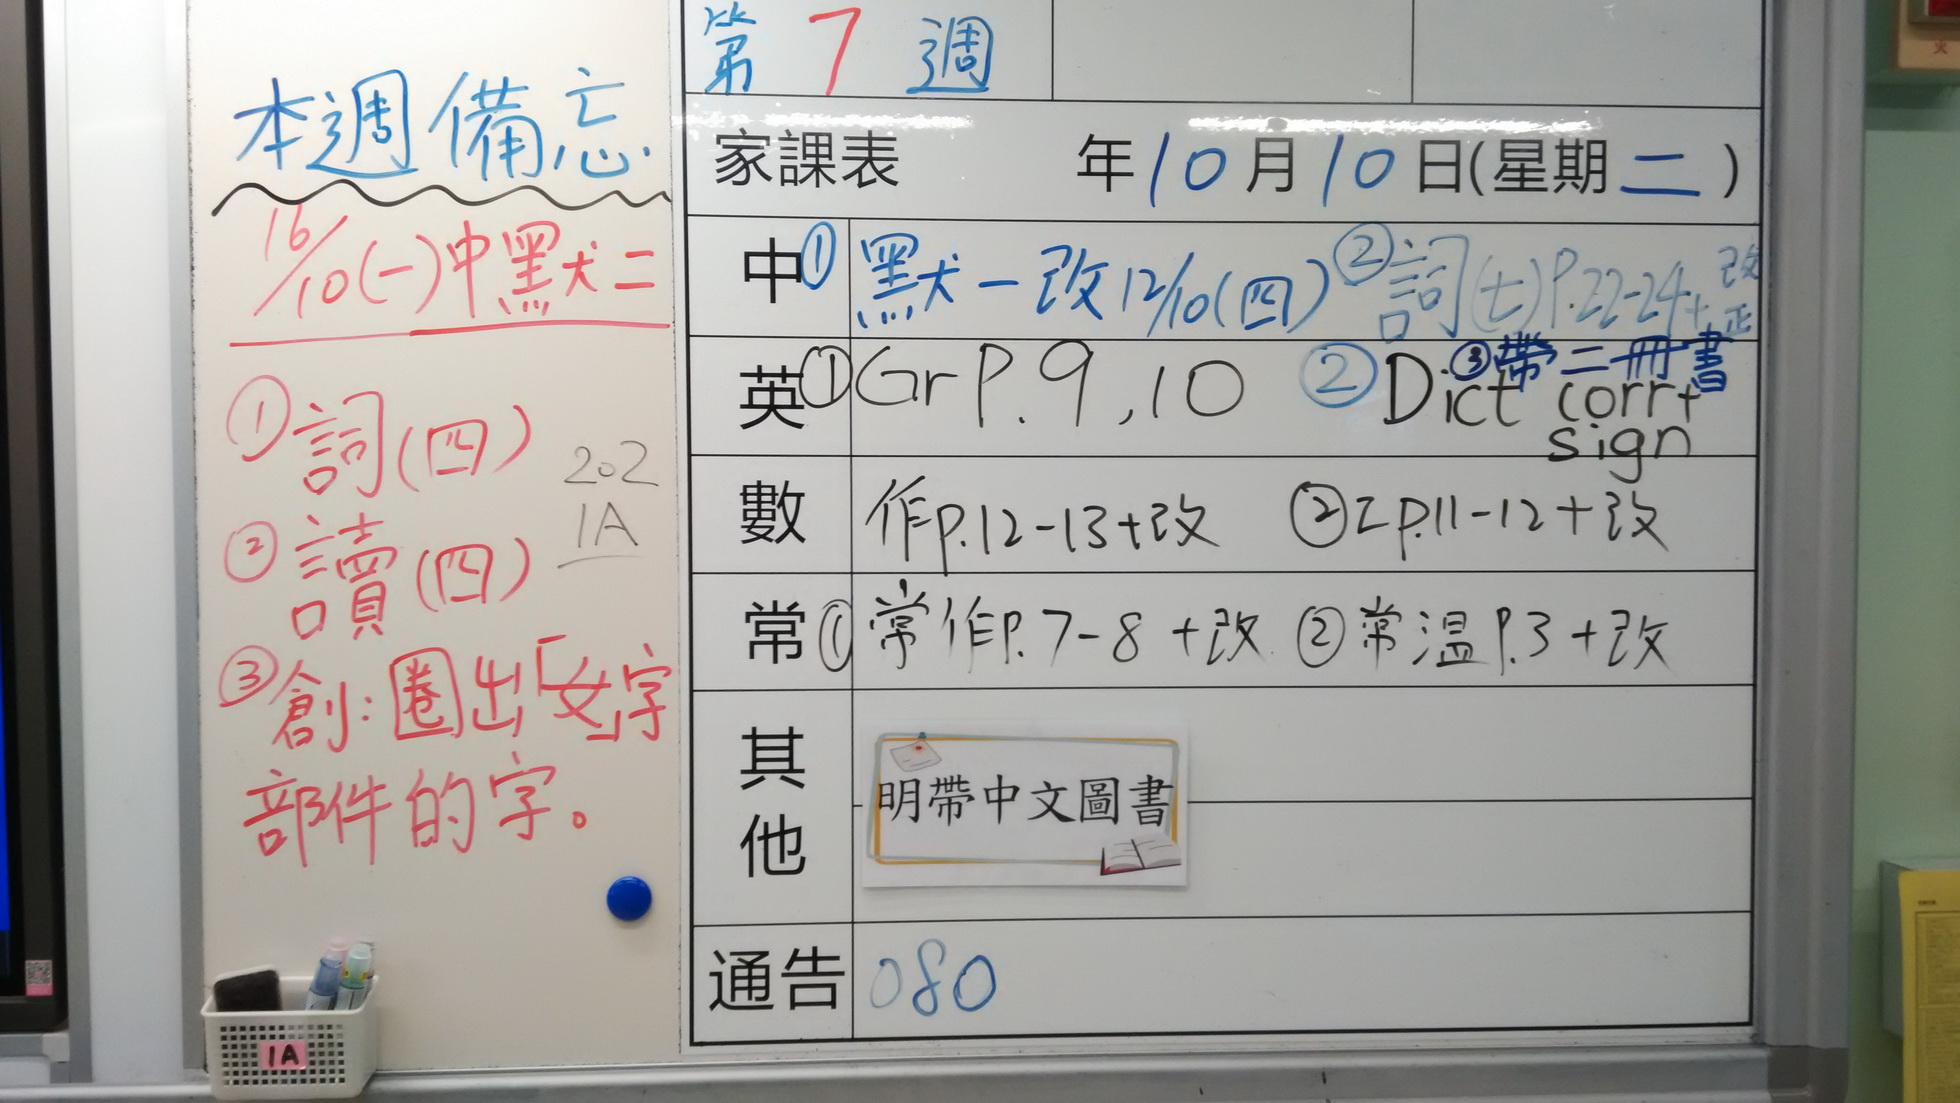 本週備忘.
16/10(一)中默二
①詞(四)
②讀(四)
202
1A
③創:圈出「女」字
部件的字。
1A
第7週
家課表 年10月10日(星期二)
中①默一改12/10(四) ②詞(七)P.22-24+改正
③帶二冊書
英①Gr P.9,10 ②Dict corr+
sign
數 作P.12-13+改 ②工P.11-12+改
常①常作P.7-8+改 ②常温P.3+改
其他
明帶中文圖書
通告 080
火